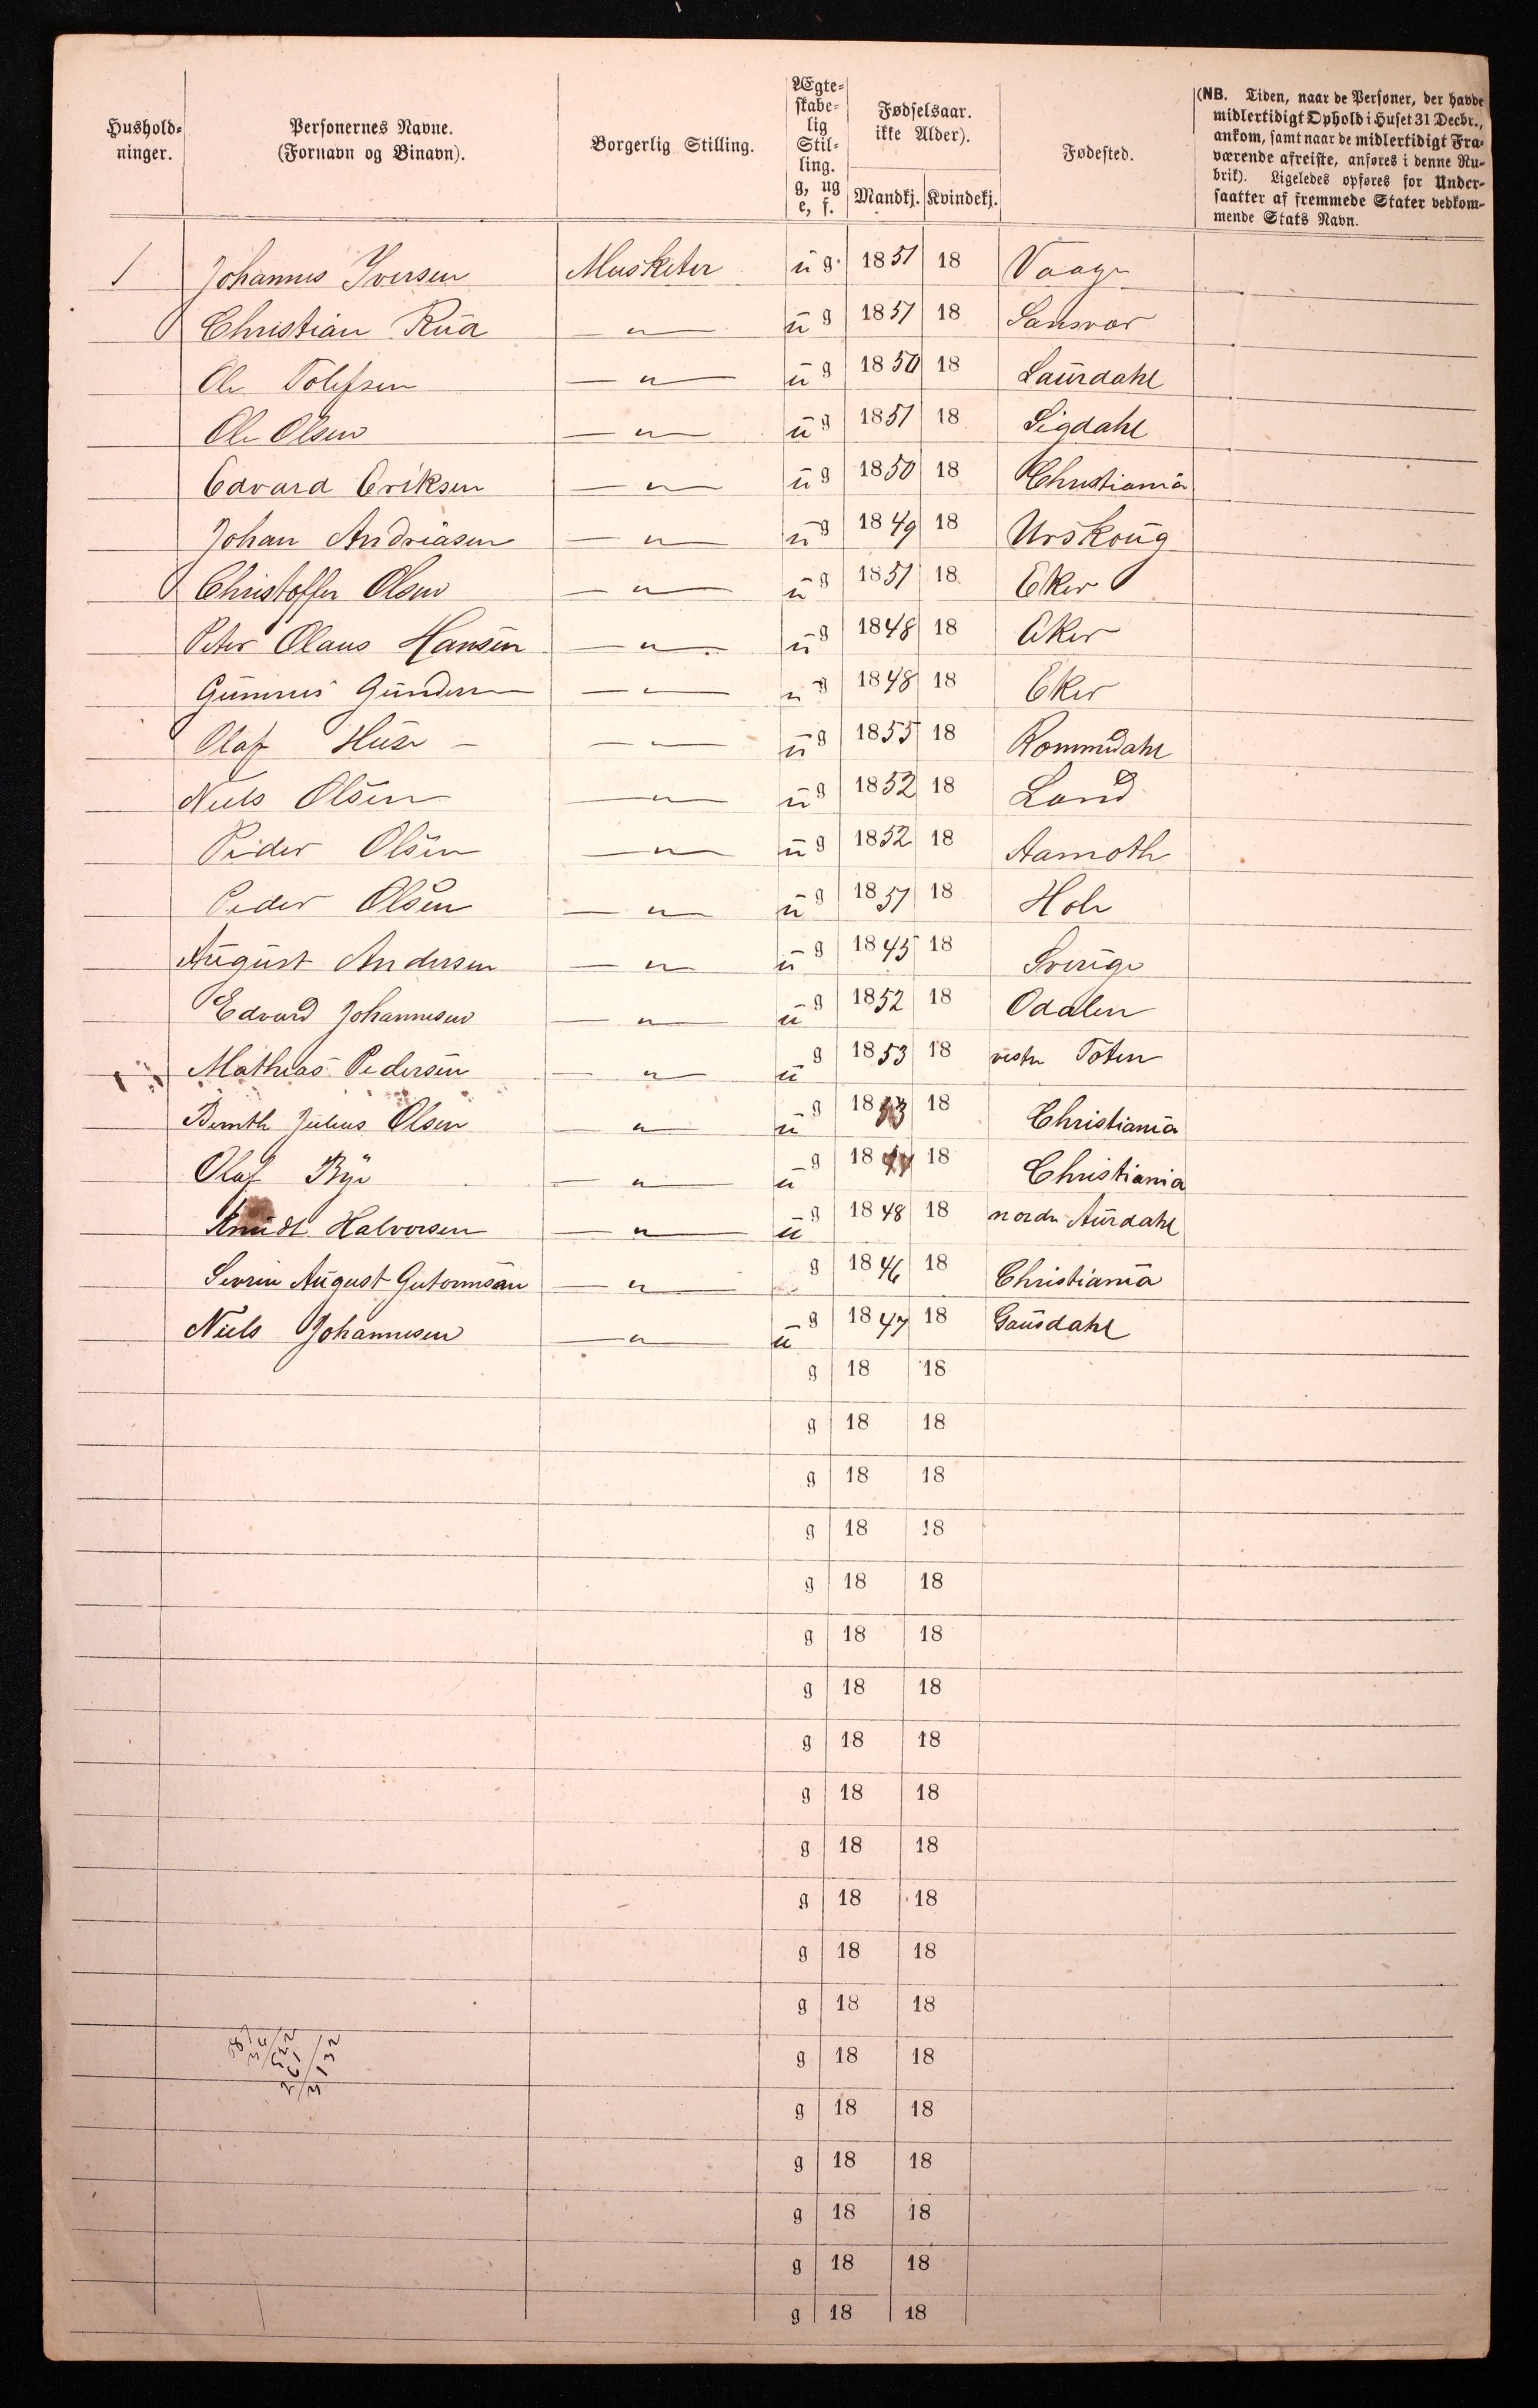 Hushold-
ninger.
Personernes Navne.
(Fornavn og Binavn).
Borgerlig Stilling.
Ægte-
skabe-
lig
Stil-
ling.
g, ug
e, f.
Fødselsaar.
ikke Alder).
Mandkj. Kvindekj.
Fødested.
(NB. Tiden, naar de Personer, der havde
midlertidigt Ophold i Huset 31 Decbr.,
ankom, samt naar de midlertidigt Fra-
værende afreiste, anføres i denne Ru-
brik). Ligeledes opføres for Under-
saatter af fremmede Stater vedkom-
mende Stats Navn.
1 Johannes Iversen Musketer ug. 1851 18 Vaage
Christian Rua — " — ug 1851 18 Sansvær
Ole Tolefsen — " — ug 1850 18 Laurdahl
Ole Olsen — " — ug 1851 18 Sigdahl
Edvard Eriksen — " — ug 1850 18 Christiania
Johan Andreasen — " — ug 1849 18 Urskoug
Christoffer Olsen — " — ug 1851 18 Eker
Peter Olaus Hansen — " — ug 1848 18 Eker
Gunnar Gundersen — " — ug 1848 18 Eker
Olaf Huse — — " — ug 1855 18 Rommsdahl
Niels Olsen — " — ug 1852 18 Land
Peder Olsen — " — ug 1852 18 Aamoth
Peder Olsen — " — ug 1851 18 Hole
August Andersen — " — ug 1845 18 Sverige
Edvard Johannesen — " — ug 1852 18 Odalen
Mathias Pedersen — " — ug 1853 18 vestre Toten
Bernth Julius Olsen — " — ug 1853 18 Christiania
Olaf Bye — " — ug 18 18 Christiania
Knudt Halvorsen — " — ug 1848 18 nordre Aurdahl
Sevrin August Gutormsen — " — g 1846 18 Christiania
Niels Johannesen — " — ug 1847 18 Gausdahl
g 18 18
g 18 18
g 18 18
g 18 18
g 18 18
g 18 18
g 18 18
g 18 18
g 18 18
g 18 18
g 18 18
g 18 18
g 18 18
g 18 18
g 18 18
g 18 18
g 18 18
g 18 18
g 18 18